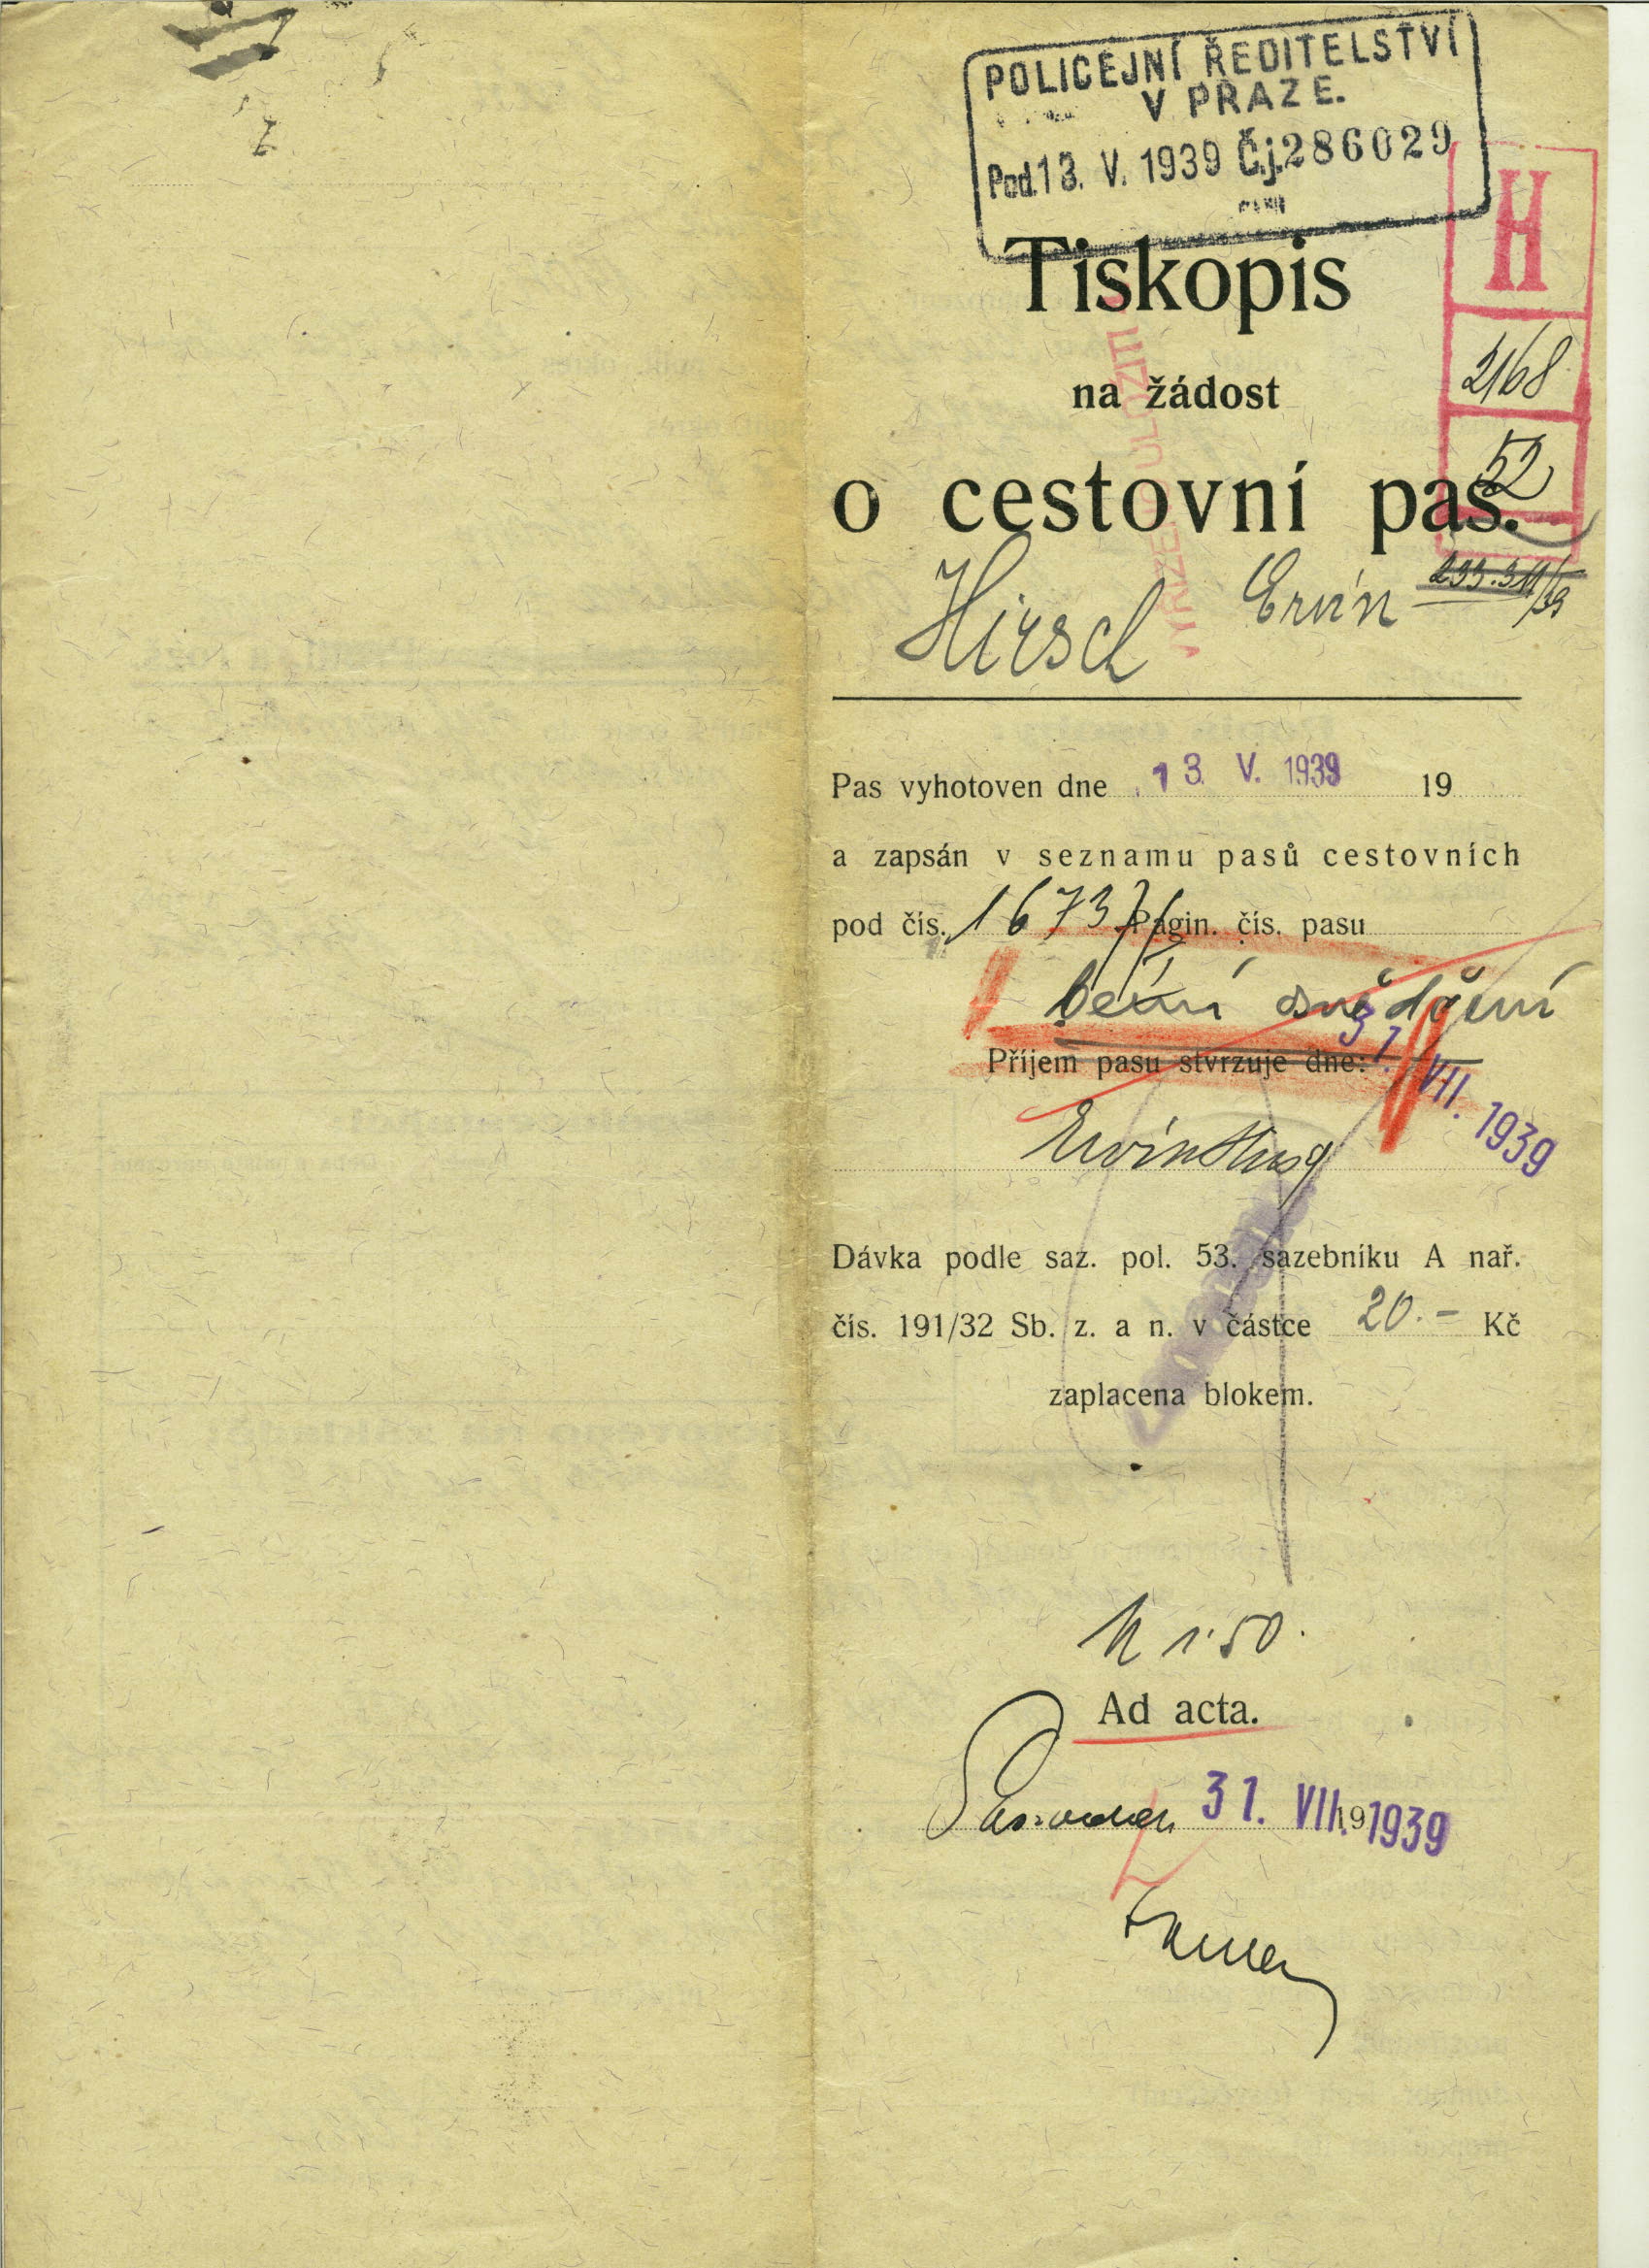 POLICEJNÍ ŘEDITELSTVÍ
V PRAZE.
Pod. 13. V. 1939 Č.j. 286029
H
Tiskopis
2168
na žádost
52
o cestovní pas.
Hirsch Ervín
Pas vyhotoven dne 13. V. 1939 19
a zapsán v seznamu pasů cestovních
pod čís. 16737 Pagin. čís. pasu
Příjem pasu stvrzuje dne: 31. VII. 1939
Ervin Hirsch
Dávka podle saz. pol. 53. sazebníku A nař.
čís. 191/32 Sb. z. a n. v částce 20.- Kč
zaplacena blokem.
K 1·50.
Ad acta.
31. VII. 19 1939